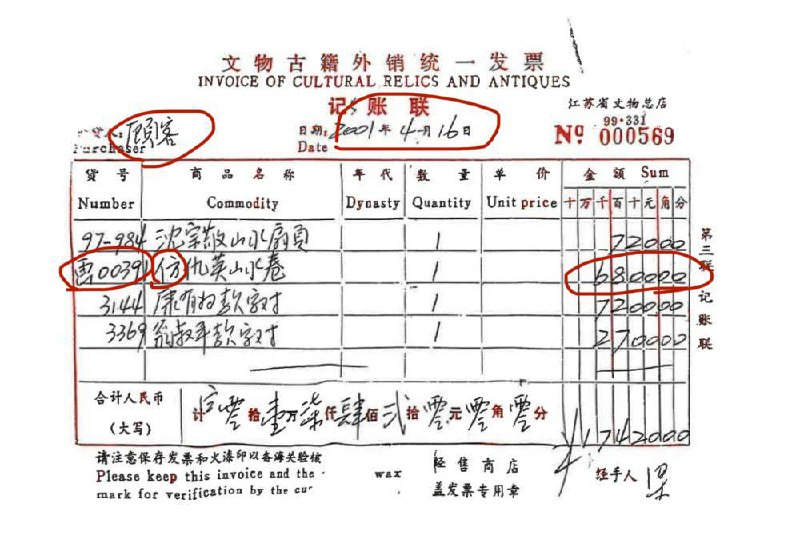 文物古籍外销统一发票
INVOICE OF CULTURAL RELICS AND ANTIQUES
记账联
江苏省文物总店
99·331
顾客
日期: 2001年4月16日
Nº 000569
Purchaser
Date
货号 商品名称 年代 数量 单价 金额 Sum
Number Commodity Dynasty Quantity Unit price 十万千百十元角分
97-984 沈宗敬山水扇页 1 72000
0039 仿仇英山水卷 1 680000
3144 康有为款字对 1 720000
3369 翁叔平款字对 1 270000
合计人民币 计 零拾壹万柒仟肆佰贰拾零元零角零分
(大写) 1742000
第三联 记账联
请注意保存发票和火漆印以备海关验核
Please keep this invoice and the wax
mark for verification by the cu
经售商店
盖发票专用章
经手人 梁